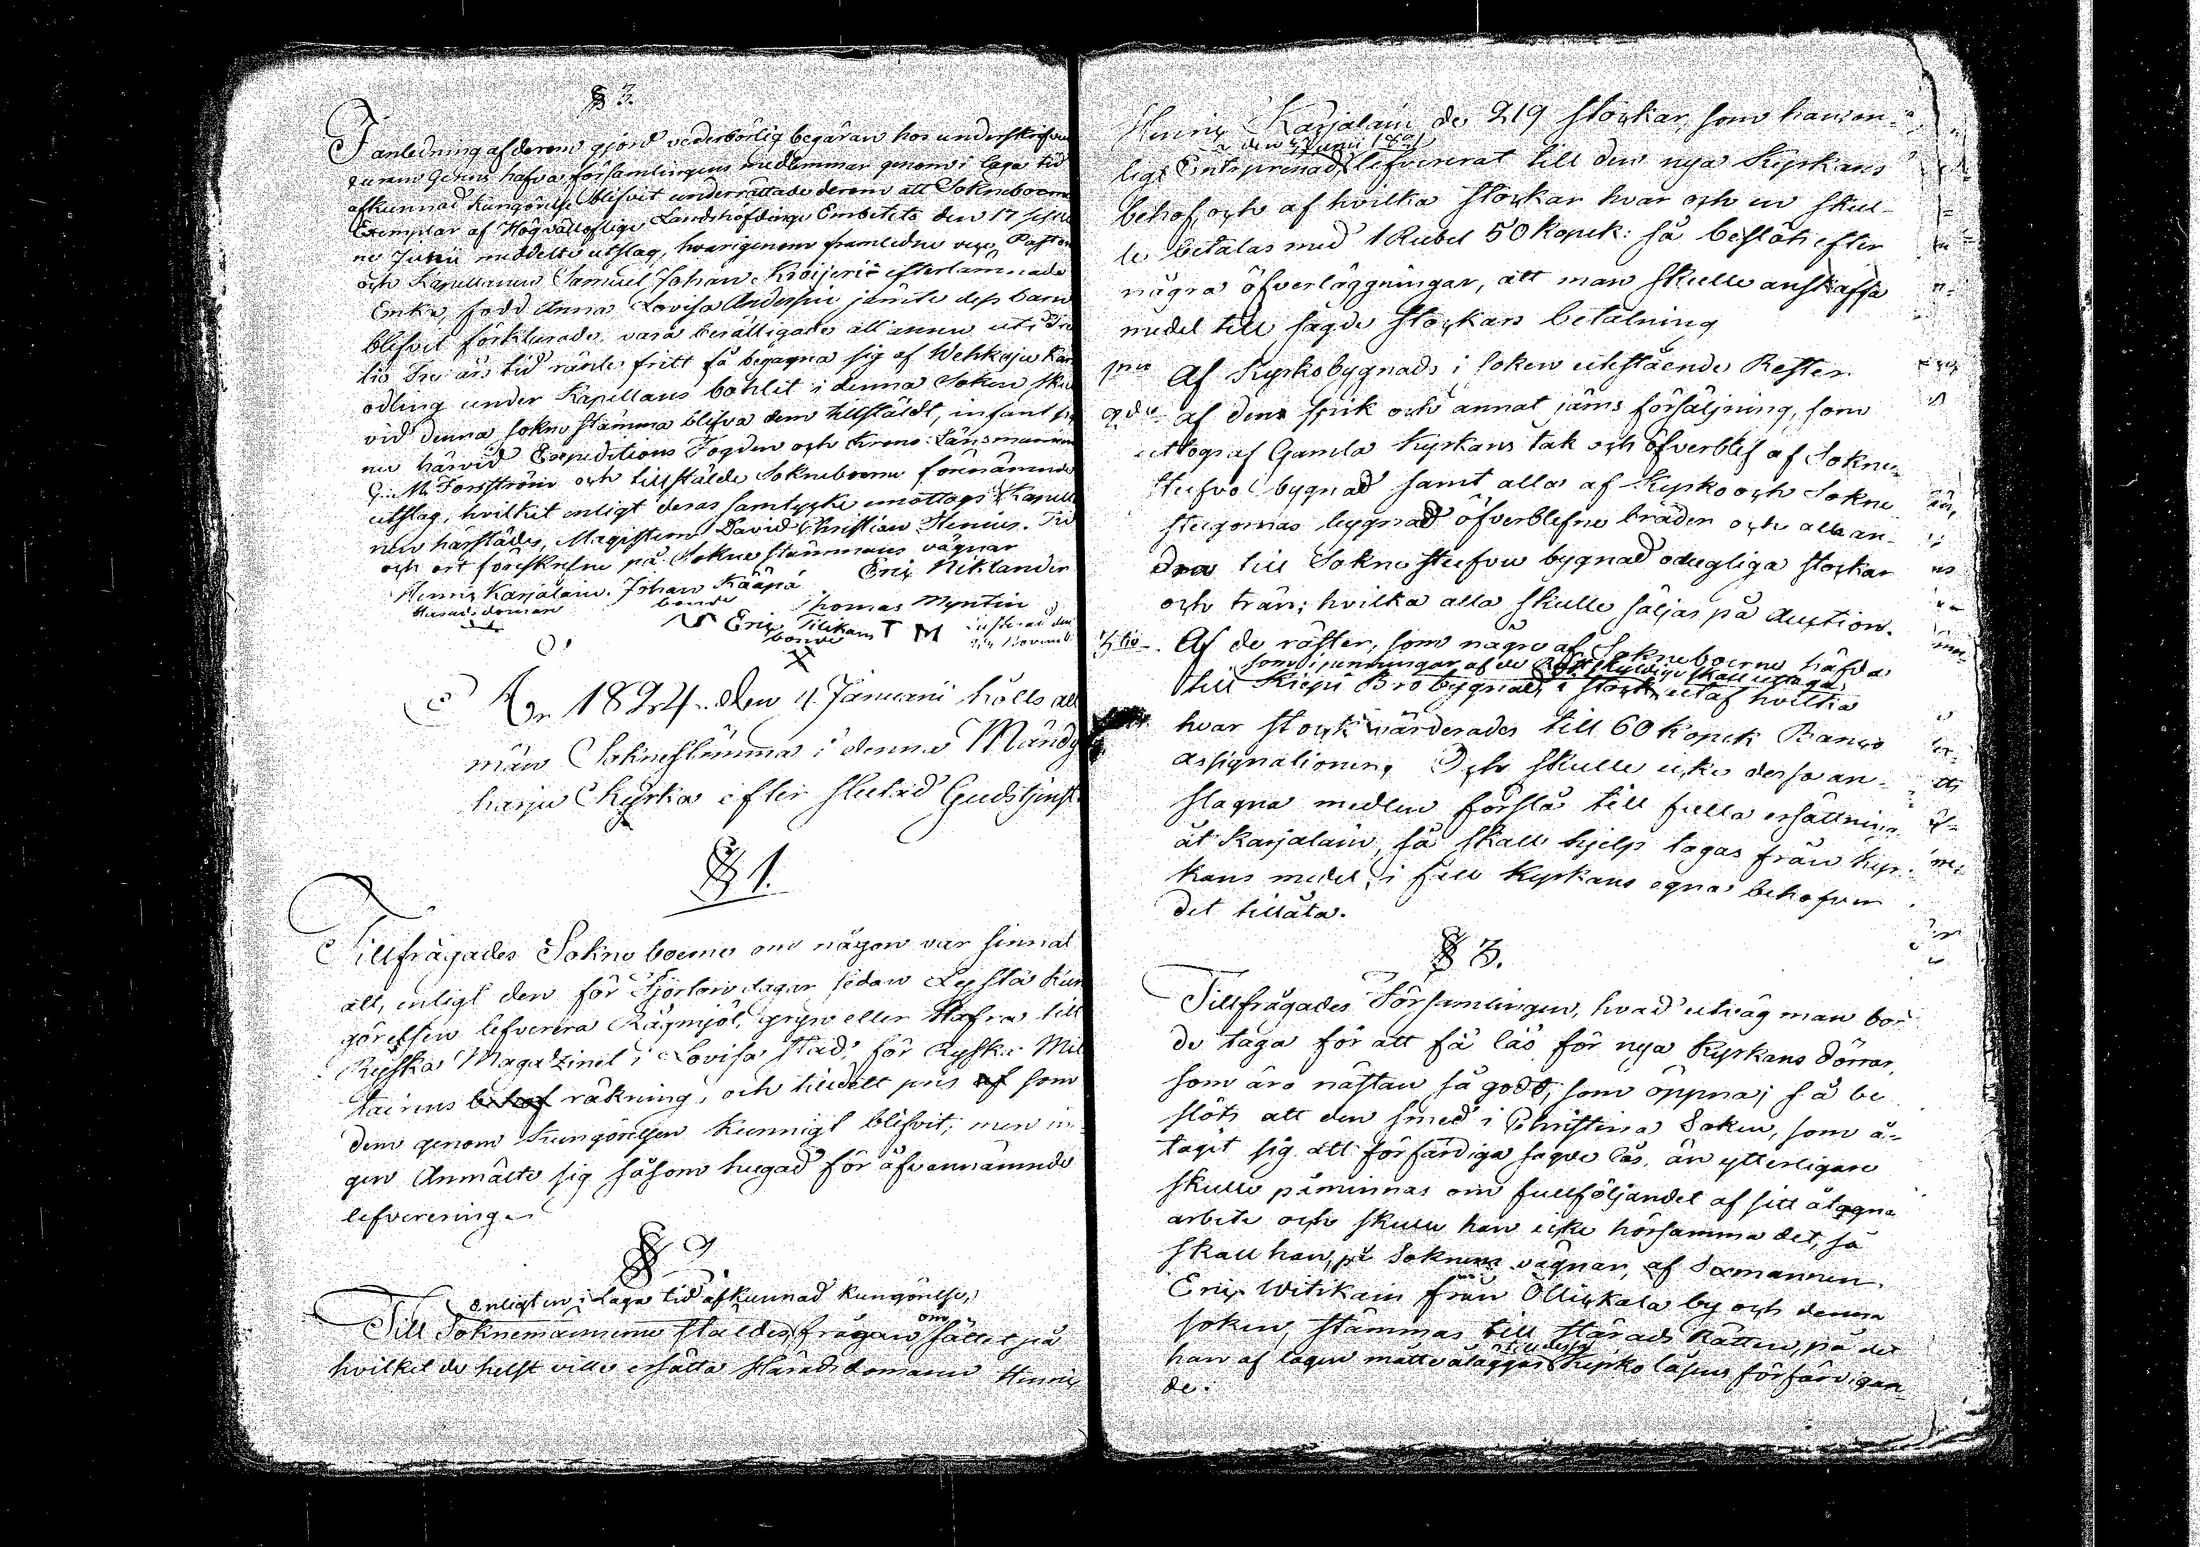 § 3.
I anledning af derom gjord vederbörlig begäran hos underskrifven
genom hafva församlingens medlemmar genom i laga tid
afkunnad Kungörelse blifvit underrättade derom att Sokneboerne
Exemplar af Högvälloflige Landshöfdinge Embetets den 17
ne Junii meddelte utslag, hvarigenom framledne vice Pastorn
och Kapellanen Samuel Johan efterlämnade
Enka, född Anna Lovisa jämte dess barn
blifvit förklarade vara berättigade att ännu uti
tio Tre års tid räntefritt få begagna sig af
odling under Kapellans bohlet i denna Soken
vid denna sokne stämma blifva dem tillstäldt, infant
nu härvid Expeditions Fogden och Krono Länsmannen
G. M. Forsström och tillstälde Sokneboerne förenämnde
utslag, hvilket enligt deras samtycke emottogs
härstädes, Magistern David Christian Henius. Tid
och ort föreskrefne på Sokne stämmans vägnar
Henric Karjalain. Johan Kääpä Eric Niklander
Härads domare bonde Thomas Myntin
Eric Tilikain T M
bonde
År 1824 den 4 Januarii hölls all
män Sockne stämma i denna Mändy
harju Kyrka efter slutad Gudstjenst.
§ 1.
Tillfrågades Sokneboerne om någon var sinnad
att, enligt den för Fjorton dagar sedan Lyssta Kun
görelsen lefverera Rågmjöl, gryn eller Hafra till
Ryska Magatzinet i Lovisa stad, för Ryska Mili
tairens behof räkning, och till det pris af som
dem genom Kungörelsen kunnigt blifvit; men in-
gen Anmälte sig såsom hugad för åfvannämnde
lefverering.
§ 2.
enligt en i Laga tid afkunnad kungörelse,
Till Soknemännerne staldes frågan om sättet på
hvilket de helst ville ersätta Häradsdomaren Henric
Henric Karjalain de 219 stockar, som han en-
den Junii
ligt Entreprenad lefvererat till den nya Kyrkans
behof, och af hvilka stockar hvar och en skul-
le betalas med 1 Rubel 50 kopek: så beslöts efter
några öfverläggningar, att man skulle anskaffa
medel till sagde stockars betalning
1mo Af Kyrkobygnads i soken utestående Rester.
2do af den spik och annat järns försäljning, som
uttogs af Gamla Kyrkans tak och öfverblef af Sokne
stufvo bygnad samt alla af Kyrko och Sokne
stugornas bygnad öfverblefne bräder och alla an-
dra till Sokne stufvu bygnad odugliga stockar
och trän; hvilka alla skulle säljas på Auction.
3tio. Af de räster, som några af Sokneboerne häfda
som i penningar af de skyldige skall uttaga
till Kiepi Bro bygnad, i stock utaf hvilka
hvar stock värderades till 60 Kopek Banco
assignationer. Och skulle icke dessa an-
slagna medlen förslå till fulla ersättning
åt Karjalain, så skall hjelp tagas från Kyr-
kans medel, i fall Kyrkans egna behofver
det tillåta.
§ 3.
Tillfrågades Församlingen, hvad utväg man bor
de taga för att få lås för nya Kyrkans dörrar,
som äro nästan så godt, som öppna; så be
slöts att den smed i Christina Soken, som å-
tagit sig att förfärdiga sagde lås, än ytterligare
skulle påminnas om fullföljandet af sitt åtagna
arbete och skulle han icke hörsamma det, så
skall han, på Soknens vägnar, af Sexmannen
Eric Witikain från Ollickala by och denna
soken, stämmas till Härads Rätten, på det
han af lagen måtte åläggas Kyrko låsens förfärdigan
de.